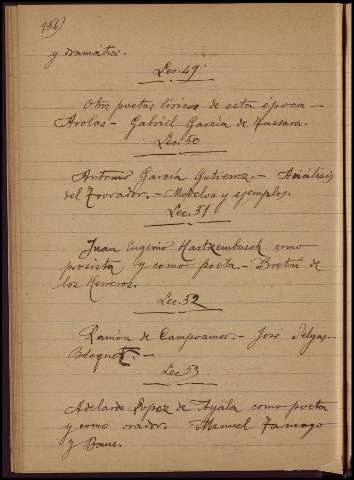 y dramático.
Lec. 49
Otros poetas líricos de esta época -
Arolas - Gabriel García de Tassara.
Lec. 50
Antonio García Gutierrez. - Análisis
del Trovador. - Modelos y ejemplos.
Lec. 51
Juan Eugenio Hartzembusch como
prosista y como poeta. - Bretón de
los Herreros.
Lec. 52
Ramón de Campoamor. - José Selgas -
Bécquer. -
Lec 53
Adelardo Lopez de Ayala como poeta
y como orador. Manuel Tamayo
y Baus.